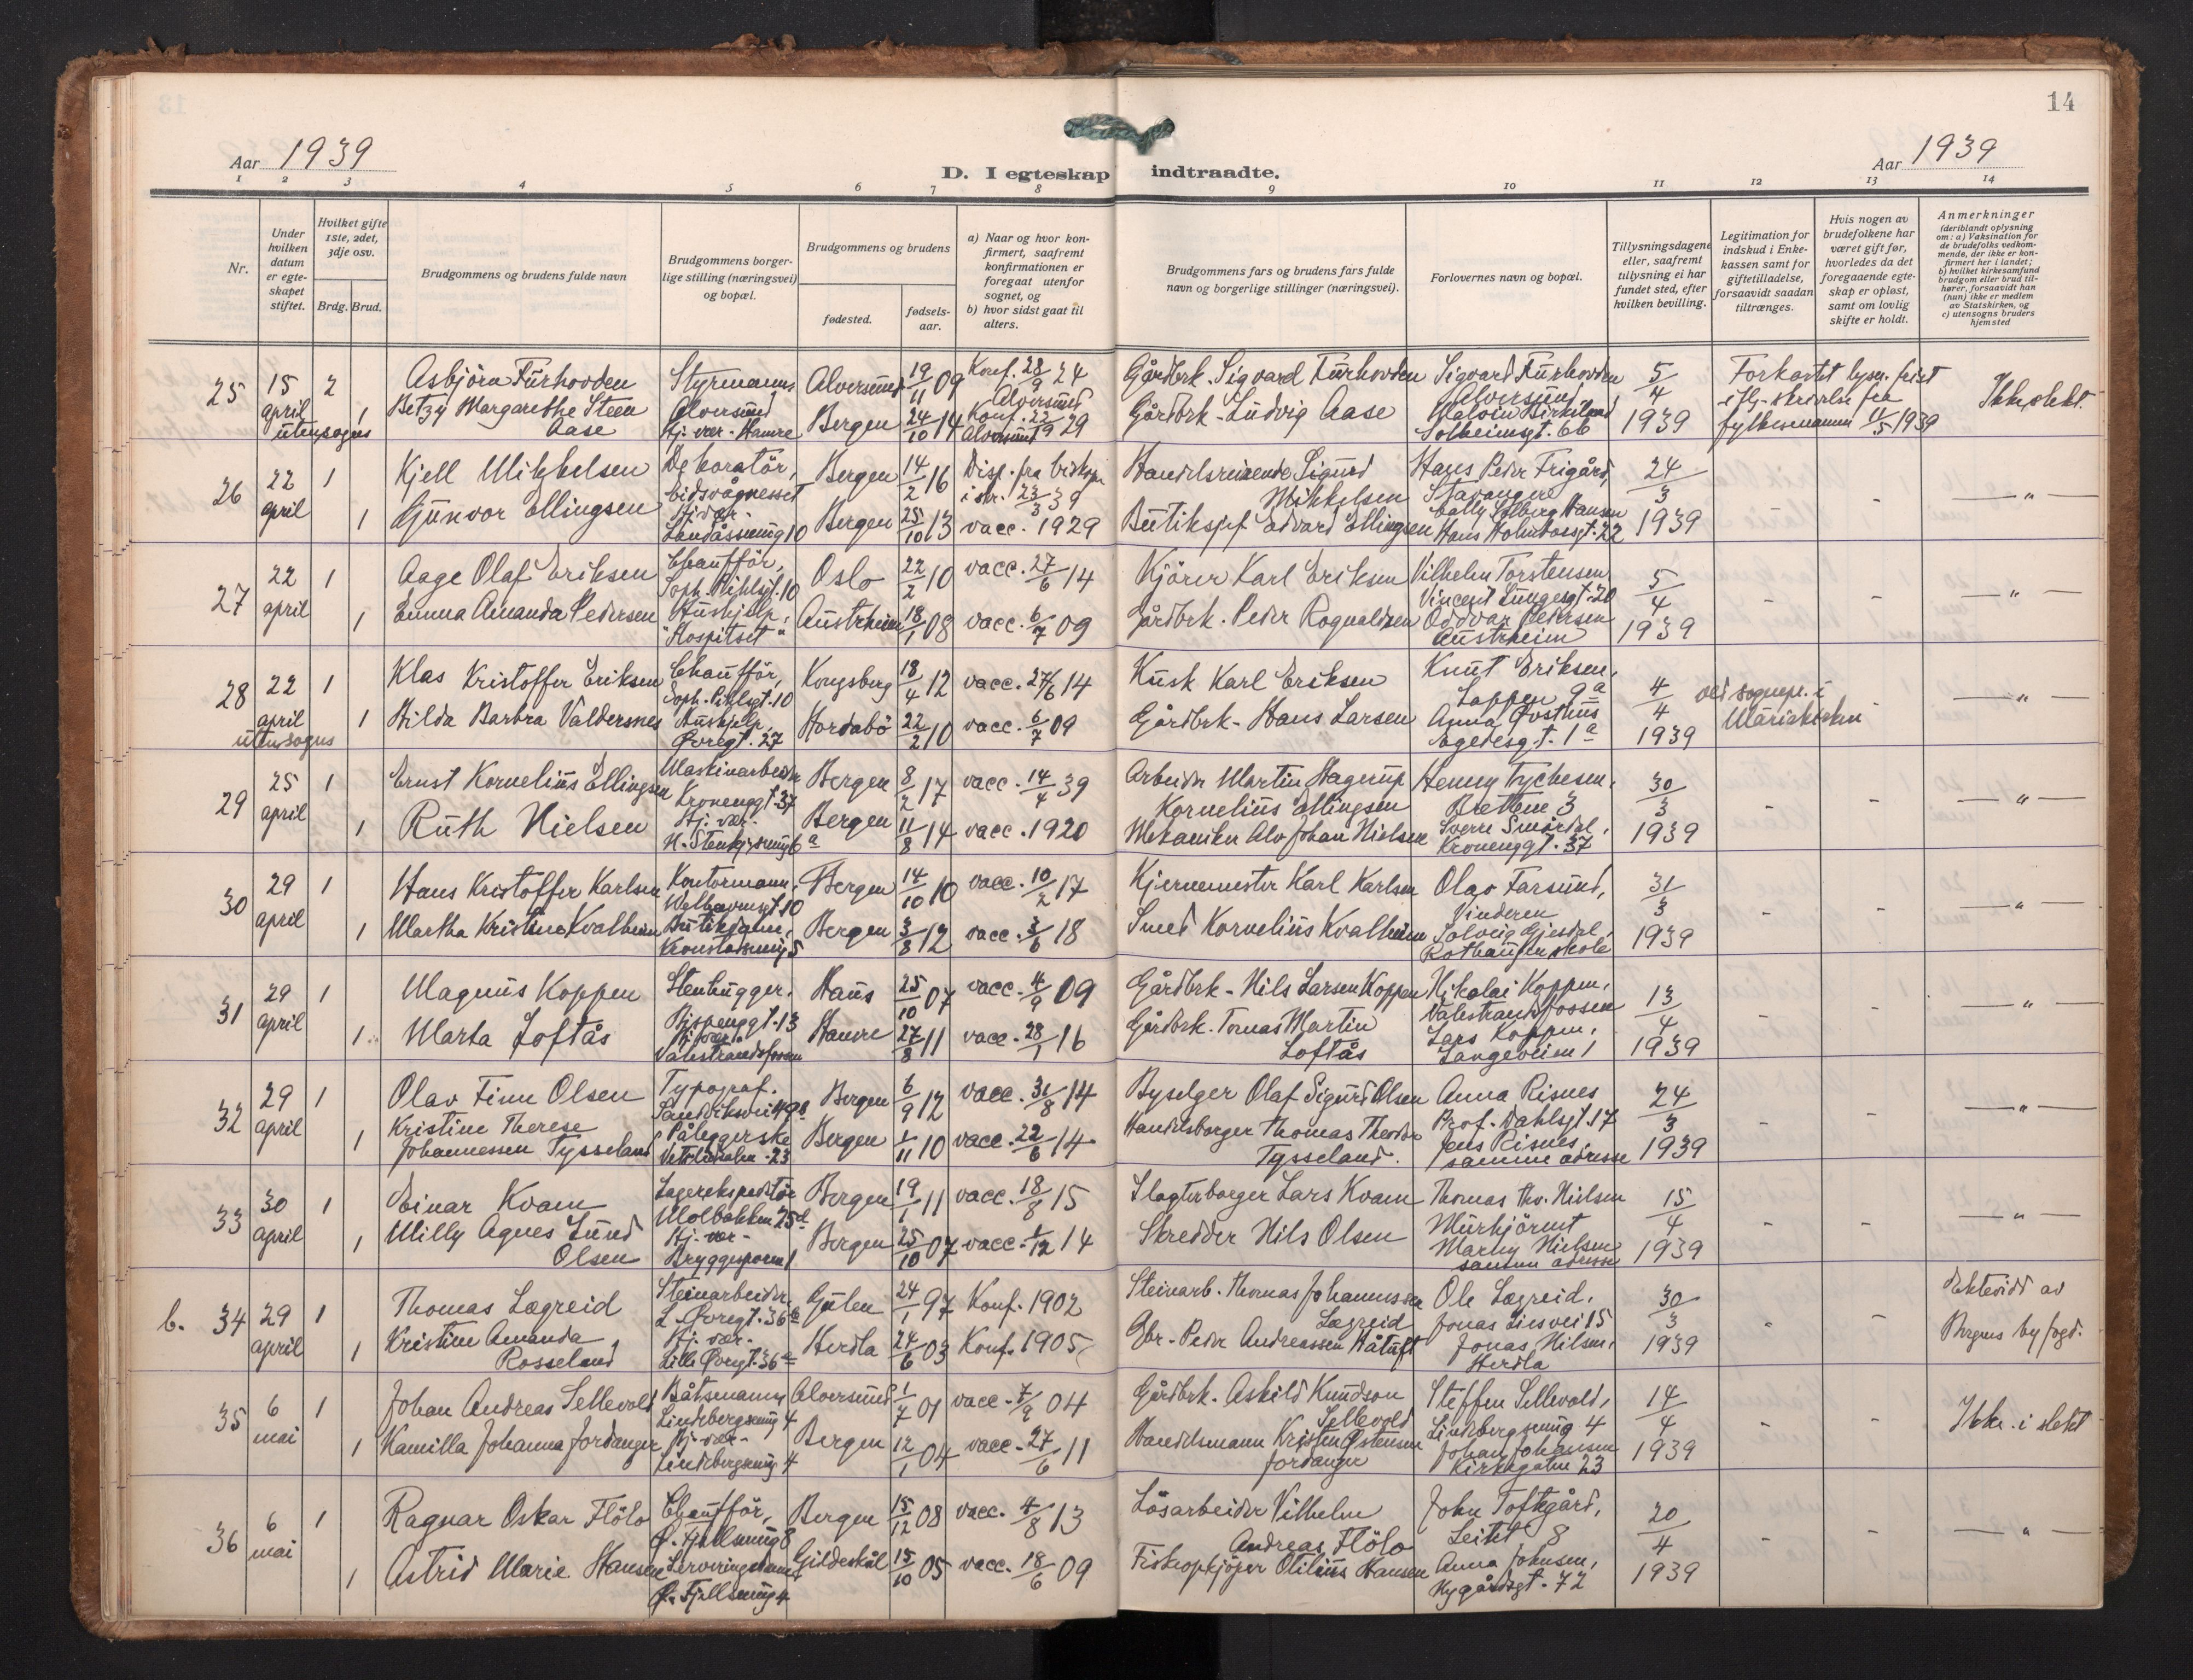 14
Aar 1939
D. I egteskap indtraadte.
Aar 1939
1 2 3 4 5 6 7 8 9 10 11 12 13 14
Nr.
Under hvilken datum er egteskapet stiftet.
Hvilket gifte 1ste, 2det, 3dje osv.
Brdg. Brud.
Brudgommens og brudens fulde navn
Brudgommens borgerlige stilling (næringsvei) og bopæl.
Brudgommens og brudens
fødested.
fødselsaar.
a) Naar og hvor konfirmert, saafremt konfirmationen er foregaat utenfor sognet, og
b) hvor sidst gaat til alters.
Brudgommens fars og brudens fars fulde navn og borgerlige stillinger (næringsvei).
Forlovernes navn og bopæl.
Tillysningsdagene eller, saafremt tillysning ei har fundet sted, efter hvilken bevilling.
Legitimation for indskud i Enkekassen samt for giftetilladelse, forsaavidt saadan tiltrænges.
Hvis nogen av brudefolkene har været gift før, hvorledes da det foregaaende egteskap er opløst, samt om lovlig skifte er holdt.
Anmerkninger (deriblandt oplysning om: a) Vaksination for de brudefolks vedkommende, der ikke er konfirmert her i landet; b) hvilket kirkesamfund brudgom eller brud tilhører, forsaavidt han (hun) ikke er medlem av Statskirken, og c) utensogns bruders hjemsted
25 15 april utensogns 2 Asbjörn Furhovden Styrmann, Alversund Alversund 19/11 09 Konf. 28/9 24 Alversund Gårdbrk. Sigvard Furhovden Sigvard Furhovden Alversund 5/4 1939 Forkortet lysn. frist iflg. skrivelse fra fylkesmannen 11/5 1939 Ikke slekt.
1 Betzy Margarethe Steen Aase Hj. vær. Hamre Bergen 24/10 14 Konf. 22/9 29 Alversund Gårdbrk. Ludvig Aase Malvin Birkeland Solheimsgt. 66
26 22 april 1 Kjell Mikkelsen Dekoratör, Eidsvågnesset Bergen 14/2 16 Disp. fra biskopen i skr. 23/3 39 Handelsreisende Sigurd Mikkelsen Hans Peder Frigård, Stavanger 24/3 1939 - - " -
1 Gunvor Ellingsen Hj. vær. Landåsvning 10 Bergen 25/10 13 vacc. 1929 Butiksjef Edvard Ellingsen Cally Solberg Hansen Hans Holmboesgt. 22
27 22 april 1 Aage Olaf Eriksen Chauffför, Soph. Pihlsgt. 10 Oslo 22/2 10 vacc. 27/6 14 Kjörer Karl Eriksen Vilhelm Torstensen Vincent Lungesgt. 20 5/4 1939 - - - " -
1 Emma Amanda Pedersen Hushjelp, "Hospitset" Austrheim 18/1 08 vacc. 6/7 09 Gårdbrk. Peder Rognaldsen Oddvar Pedersen Austrheim
28 22 april utensogns 1 Klas Kristoffer Eriksen Chauffför, Soph. Pihlsgt. 10 Kongsberg 18/4 12 vacc. 27/6 14 Kusk Karl Eriksen Knut Eriksen, Loppen 9a 4/4 1939 ved sognepr. i Mariakirken - - " -
1 Hilda Barbra Valdersnes Hushjelp, Øvregt. 27 Hordabö 22/2 10 vacc. 6/7 09 Gårdbrk. Hans Larsen Anna Østhus Egedesgt. 1a
29 25 april 1 Ernst Kornelius Ellingsen Maskinarbeider Kronenggt. 37 Bergen 8/2 17 vacc. 14/4 39 Arbeider Martin Hagerup Kornelius Ellingsen Henny Tychesen, Brettene 3 30/3 1939 - - - " -
1 Ruth Nielsen Hj. vær. Bergen 11/8 14 vacc. 1920 Mekaniker Alv Johan Nielsen Sverre Smördal, Kronenggt. 37
30 29 april 1 Hans Kristoffer Karlsen Kontormann, Welhavensgt. 10 Bergen 14/10 10 vacc. 10/2 17 Kjernemester Karl Karlsen Olav Farsund, Vinderen 31/3 1939 - - - " -
1 Martha Kristine Kvalheim Butikdame, Bergen 3/8 12 vacc. 3/6 18 Smed Kornelius Kvalheim Solveig Gjesdal, Rothaugen skole
31 29 april 1 Magnus Koppen Stenhugger, Bispenggt. 13 Haus 25/10 07 vacc. 4/9 09 Gårdbrk. Nils Larsen Koppen Nikolai Koppen, Valestrandsfossen 13/4 1939 - - - " -
1 Marta Loftås Hj. vær. Valestrandsfossen Hamre 27/8 11 vacc. 28/1 16 Gårdbrk. Tomas Martin Loftås Lars Koppen, Langeveien 1
32 29 april 1 Olav Finn Olsen Typograf. Bergen 6/9 12 vacc. 31/8 14 Byselger Olaf Sigurd Olsen Anna Risnes Prof. Dahlsgt. 17 24/3 1939 - - - " -
1 Kristine Therese Johannessen Tysseland Påleggerske Bergen 1/11 10 vacc. 22/6 14 Handelsborger Thomas Theodor Tysseland. Jens Risnes, samme adresse
33 30 april 1 Einar Kvam Lagerekspeditör Molbakken 25d Bergen 19/1 11 vacc. 18/8 15 Slagterborger Lars Kvam Thomas Thv. Nilsen Murhjörnet 15/4 1939 - - - " -
1 Milly Agnes Lund Olsen Hj. vær. Bryggesporen 1 Bergen 25/10 07 vacc. 1/12 14 Skredder Nils Olsen Marny Nielsen samme adresse
b. 34 29 april 1 Thomas Lægreid Steinarbeider, L. Øvregt. 36a Gulen 24/1 97 Konf. 1902 Steinarb. Thomas Johannessen Lægreid Ole Lægreid, Jonas Liesvei 15 30/3 1939 - - Ektevidd av Bergens byfogd.
1 Kristine Amanda Rosseland Hj. vær. Lille Øvregt. 36a Herdla 24/6 03 Konf. 1905 Gbr. Peder Andreassen Båtuft Jonas Nilsen, Herdla
35 6 mai 1 Johan Andreas Sellevold Båtsmann, Lindebergsvning 4 Alversund 1/7 01 vacc. 7/9 04 Gårdbrk. Askild Knudson Sellevold Steffen Sellevold, Lindebergsvning 4 14/4 1939 - - Ikke i slekt
1 Kamilla Johanna Jordanger Hj. vær. Lindebergsvning 4 Bergen 12/1 04 vacc. 27/6 11 Handelsmann Kristen Østensen Jordanger Johan Johansen Kirkegaten 23
36 6 mai 1 Ragnar Oskar Flölo Chaufför, Ø. Fjellsmug 8 Bergen 15/12 08 vacc. 4/8 13 Lösarbeider Vilhelm Andreas Flölo John Toftegård, Leitet 8 20/4 1939 - - - " -
1 Astrid Marie Hansen Serveringsdame Ø. Fjellsmug 4 Gildeskål 15/10 05 vacc. 18/6 09 Fiskeopkjöper Otilius Hansen Anna Johnsen, Nygårdsgt. 72